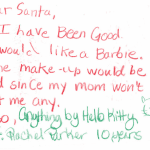 ar Santa,
I have Been Good
would like a Barbie.
e make-up would be
d since my mom won't
t me any.
so, anything by Hello Kitty.
Rachel Parker 10 years